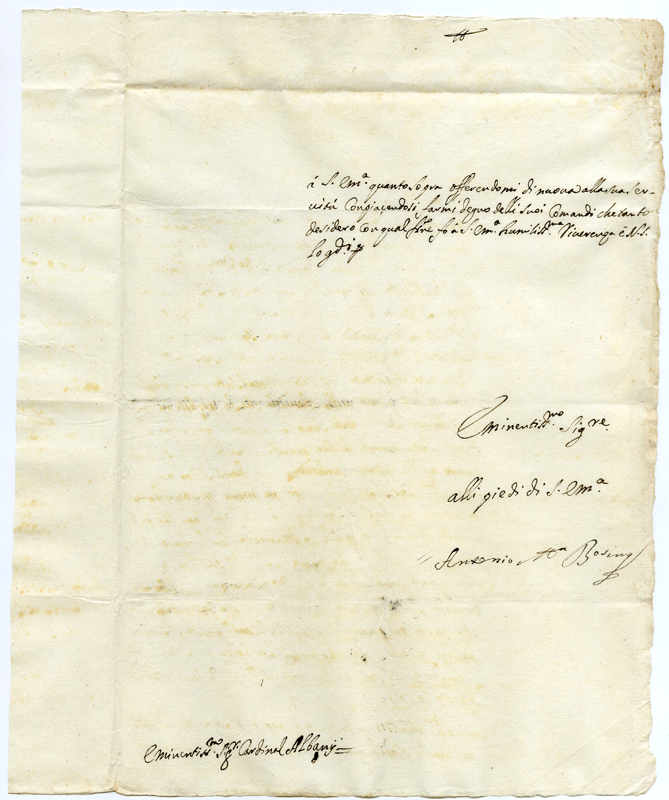 á S. Em.ª quanto sopra offerendomi di nuovo alla sua ser-
vitù Compiacendosi farmi degno delli suoi Comandi che tanto
desidero Con qual fine fo à S. Em.ª humiliss.ma Riverenza è N. S.
lo gdi.
Eminentiss.mo Sig.re
alli piedi di S. Em.ª
Antonio M.a
Eminentiss.mo Sig.r Cardinal Albanj